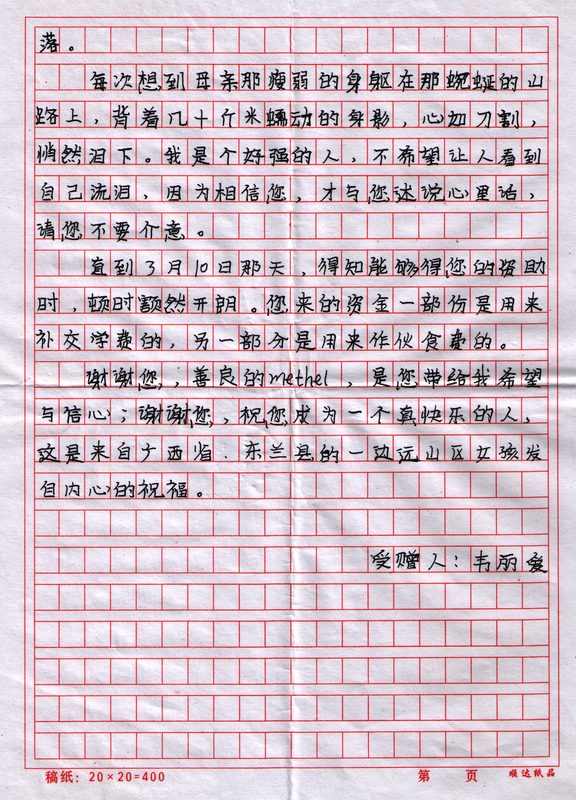 落。
每次想到母亲那瘦弱的身躯在那蜿蜒的山
路上，背着几十斤米蠕动的身影，心如刀割，
悄然泪下。我是个好强的人，不希望让人看到
自己流泪，因为相信您，才与您述说心里话，
请您不要介意。
直到3月10日那天，得知能够得您的资助
时，顿时额然开朗。您来的资金一部份是用来
补交学费的，另一部分是用来作伙食费的。
谢谢您，善良的methel，是您带给我希望
与信心；谢谢您，祝您成为一个真快乐的人，
这是来自广西省．东兰县的一边远山区女孩发
自内心的祝福。
受赠人：韦丽爱
稿纸：20×20=400 第 页 顺达纸品